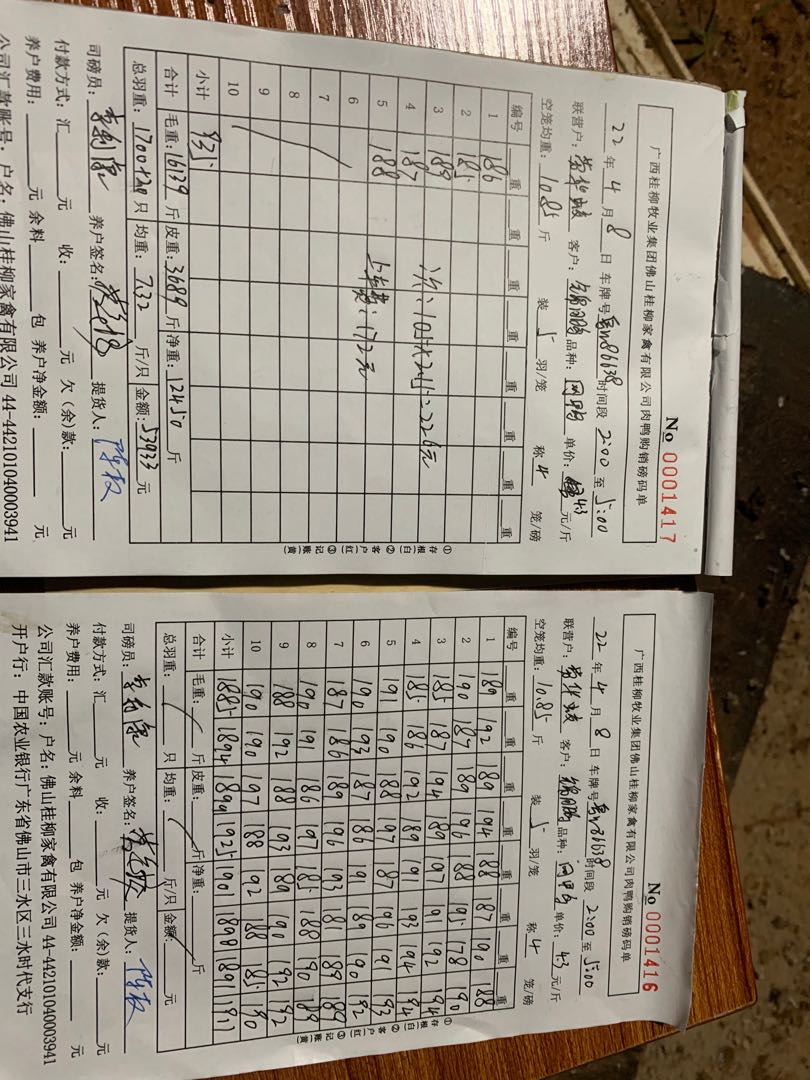 No 0001417
广西桂柳牧业集团佛山桂柳家禽有限公司肉鸭购销磅码单
22 年 4 月 8 日 车牌号 86638 时间段 2:00 至 5:00
联营户: 客户: 品种: 单价: 4.3 元/斤
空笼均重: 10.85 斤 装 5 羽/笼 称 4 笼/磅
编号 重 重 重 重 重 重 重 重
1 186
2 185
3 189
4 187
5 188
6
7
8
9
10
小计 935
上车费:172元
合计 毛重: 16139 斤 皮重: 3689 斤 净重: 12450 斤
总羽重: 1700+20 只 均重: 7.32 斤/只 金额: 53933 元
司磅员: 养户签名: 提货人:
付款方式: 汇 元 收: 元 欠(余)款: 元
养户费用: 元 余料 包 养户净金额: 元
公司汇款账号: 户名: 佛山桂柳家禽有限公司 44-442101040003941
①存根(白) ②客户(红) ③记账(黄)
No 0001416
广西桂柳牧业集团佛山桂柳家禽有限公司肉鸭购销磅码单
22 年 4 月 8 日 车牌号 86638 时间段 2:00 至 5:00
联营户: 客户: 品种: 单价: 4.3 元/斤
空笼均重: 10.85 斤 装 5 羽/笼 称 4 笼/磅
编号 重 重 重 重 重 重 重 重
1 189 192 189 194 188 187 190 188
2 190 187 189 196 188 195 178 190
3 185 187 194 189 197 191 192 194
4 185 186 192 189 191 193 194 194
5 191 190 188 197 187 196 191 193
6 190 193 187 186 191 189 190 192
7 187 186 189 196 193 181 189 189
8 190 191 186 197 185 188 190 189
9 188 192 188 193 189 190 192 192
10 190 190 197 188 192 188 185 190
小计 1885 1894 1899 1925 1901 1898 1891 1911
合计 毛重: 斤 皮重: 斤 净重: 斤
总羽重: 只 均重: 斤/只 金额: 元
司磅员: 养户签名: 提货人:
付款方式: 汇 元 收: 元 欠(余)款: 元
养户费用: 元 余料 包 养户净金额: 元
公司汇款账号: 户名: 佛山桂柳家禽有限公司 44-442101040003941
开户行: 中国农业银行广东省佛山市三水区三水时代支行
①存根(白) ②客户(红) ③记账(黄)